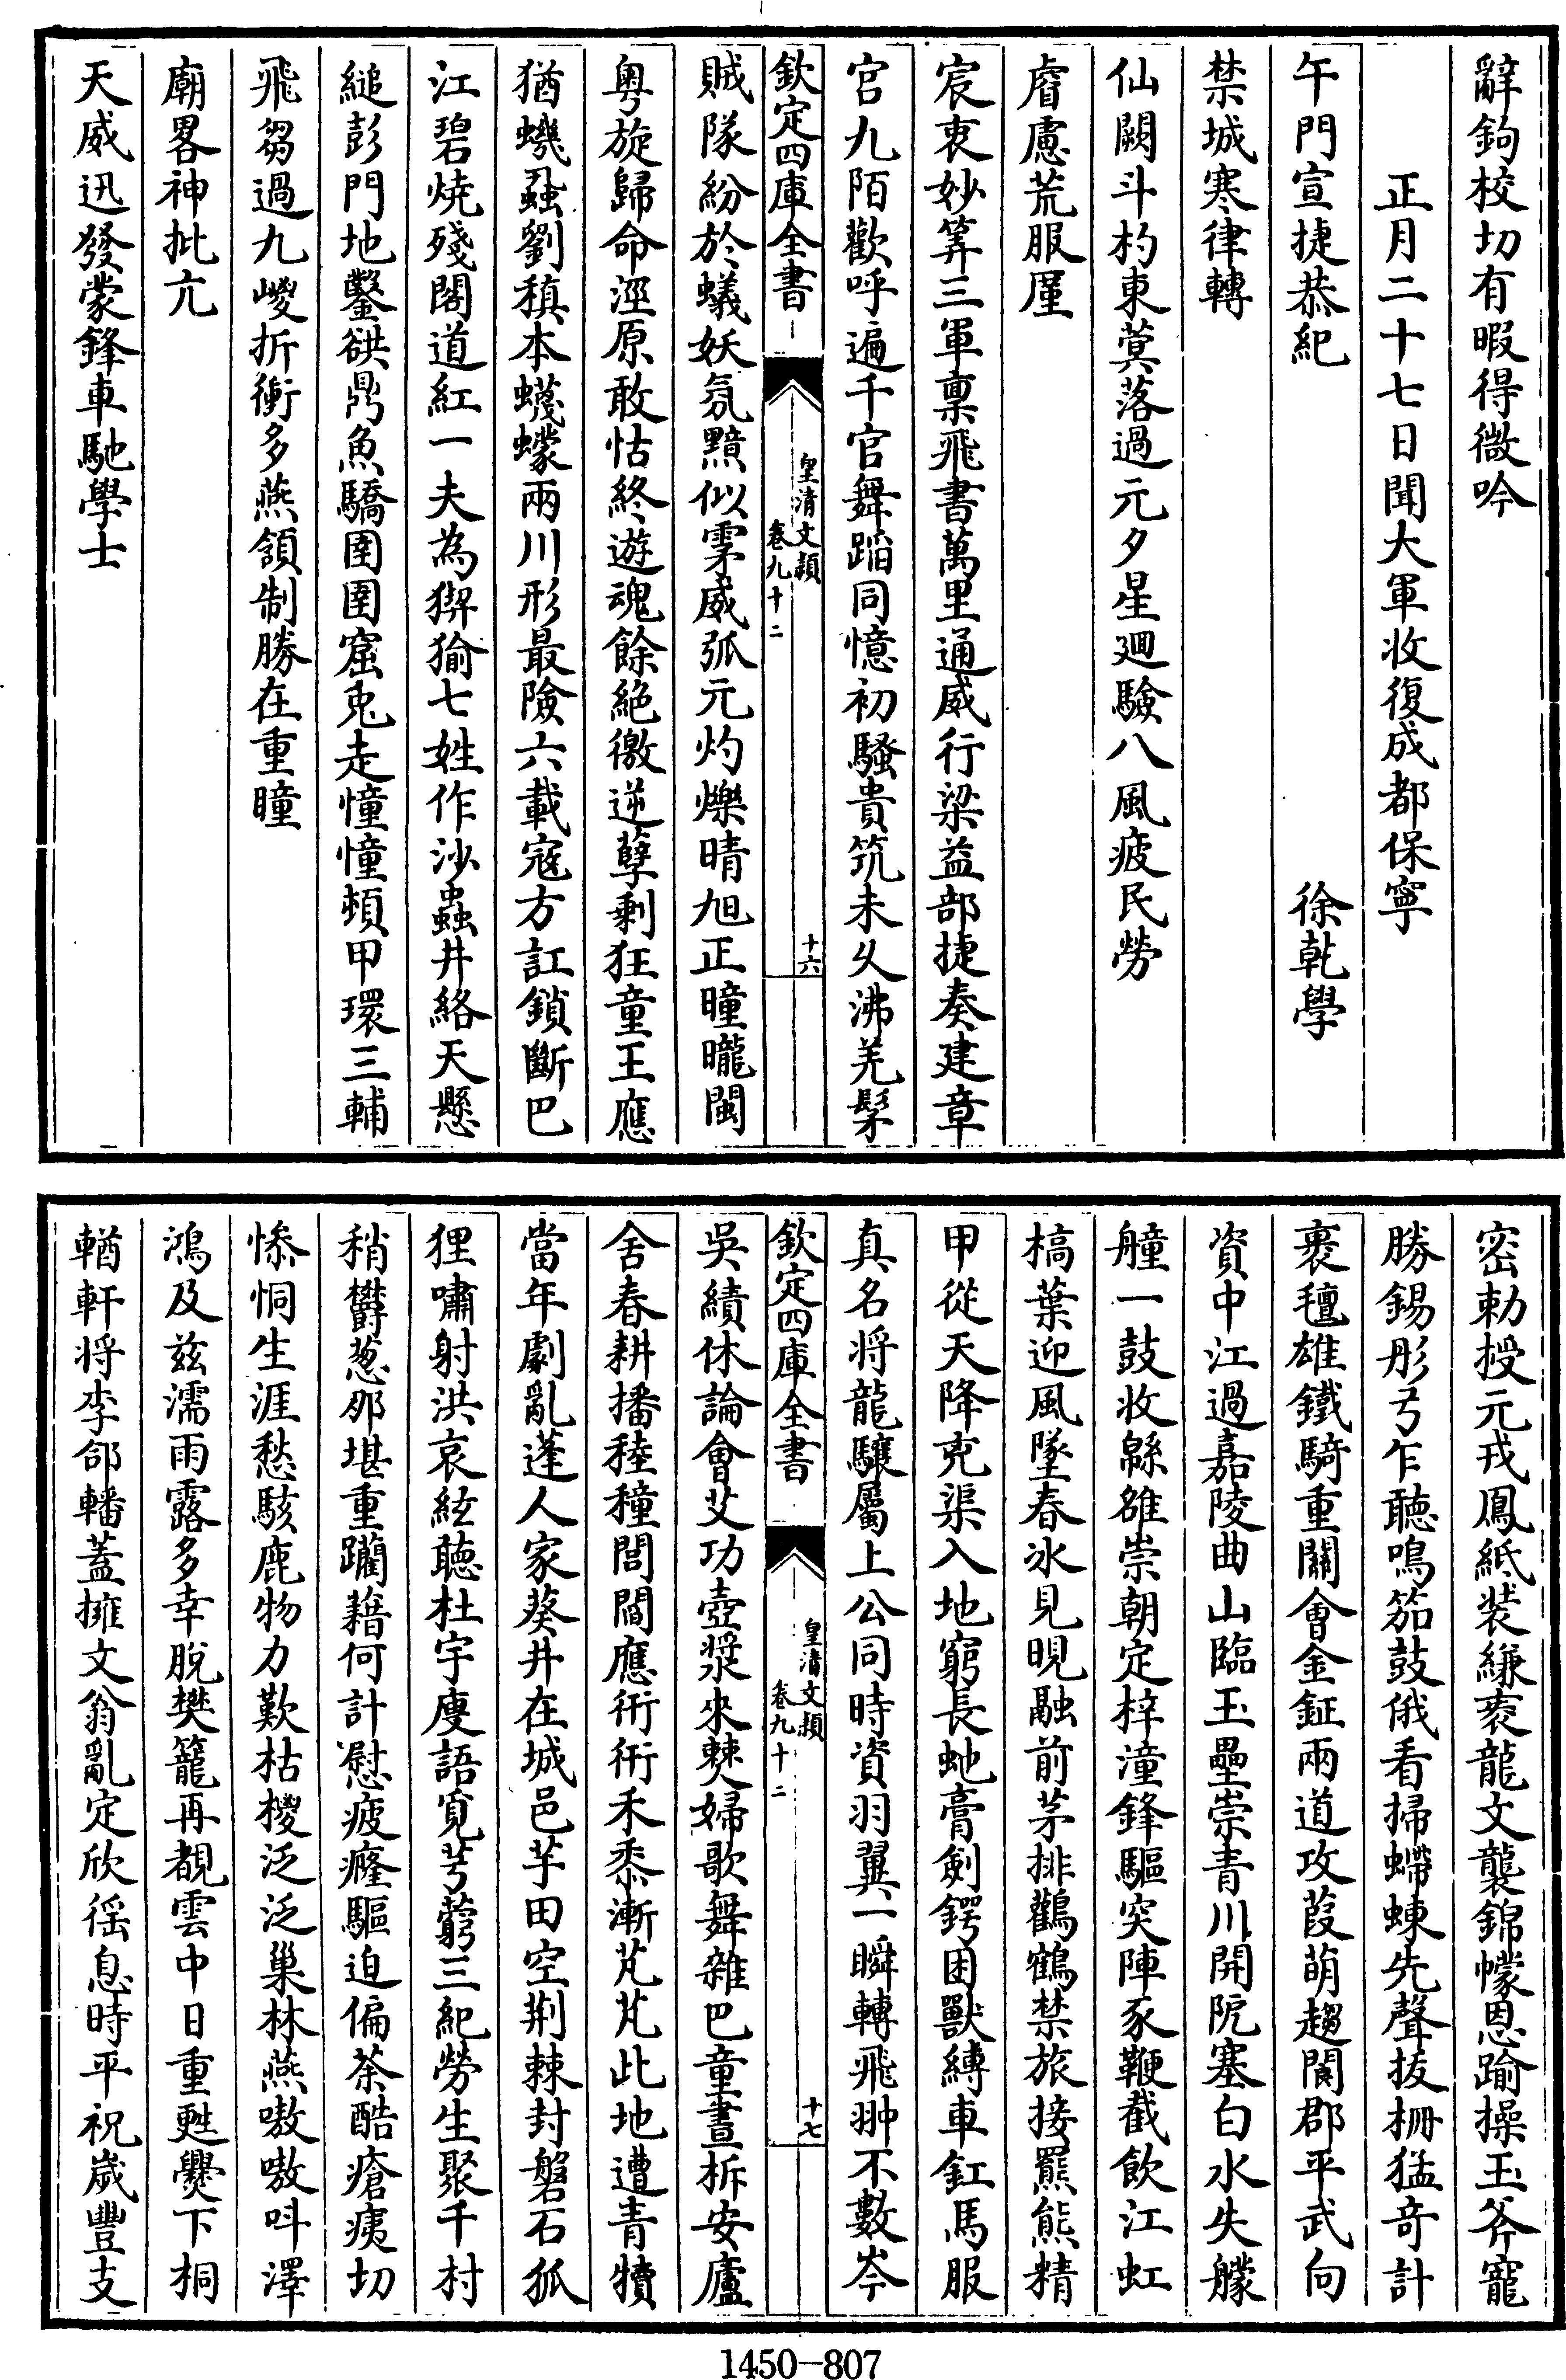 辭鉤校切有暇得微吟
正月二十七日聞大軍收復成都保寧
午門宣捷恭紀 徐乾學
禁城寒律轉
仙闕斗杓東蓂落過元夕星廻驗八風疲民勞
睿慮荒服厪
宸衷妙筭三軍稟飛書萬里通威行梁益部捷奏建章
宫九陌歡呼遍千官舞蹈同憶初騷貴筑未乆沸羌髳
欽定四庫全書
皇清文穎
卷九十二
十六
賊隊紛於蟻妖氛黯似雺威弧元灼爍晴旭正曈曨閩
粤旋歸命涇原敢怙終遊魂餘絶徼逆孽剰狂童王應
猶蟣蝨劉稹本蠛蠓兩川形最險六載寇方訌鎖斷巴
江碧燒殘閣道紅一夫為猰㺄七姓作沙蟲井絡天懸
縋彭門地鑿谼鼎魚驕圉圉窟兎走憧憧頻甲環三輔
飛芻過九嵕折衝多燕頷制勝在重瞳
廟畧神批亢
天威迅發蒙鋒車馳學士
密勅授元戎鳳紙裝縑裹龍文襲錦幪恩踰操玉斧寵
勝錫彤弓乍聽鳴笳鼓俄看掃蝃蝀先聲拔栅猛竒計
裹氊雄鐵騎重關會金鉦兩道攻葭萌趨閬郡平武向
資中江過嘉陵曲山臨玉壘崇青川開阨塞白水失艨
艟一鼓收緜雒崇朝定梓潼鋒驅突陣豕鞭截飲江虹
槁葉迎風墜春冰見晛融前茅排鸛鶴禁旅接羆熊精
甲從天降兇渠入地窮長虵膏劍鍔困獸縛車釭馬服
真名將龍驤屬上公同時資羽翼一瞬轉飛翀不數岑
欽定四庫全書
皇清文穎
卷九十二
十七
吳績休論會艾功壺漿來僰婦歌舞雜巴童晝柝安廬
舍春耕播稑穜閭閻應衎衎禾黍漸芃芃此地遭青犢
當年劇亂蓬人家葵井在城邑芋田空荆棘封磐石狐
狸嘯射洪哀絃聽杜宇廋語覓芎藭三紀勞生聚千村
稍欝葱那堪重躪藉何計慰疲癃驅迫偏荼酷瘡痍切
惨恫生涯愁駭鹿物力歎枯椶泛泛巢林燕嗷嗷呌澤
鴻及兹濡雨露多幸脫樊籠再覩雲中日重甦爨下桐
輶軒將李郃轓蓋擁文翁亂定欣徭息時平祝嵗豐支
1450—807